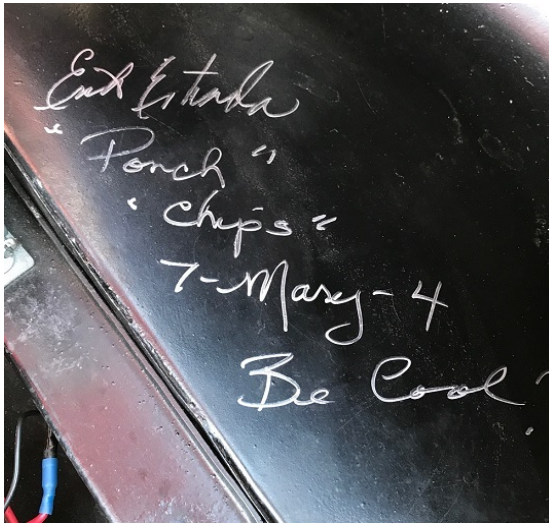 Erik Estrada
"Ponch"
"Chips"
7-Mary-4
Be Cool